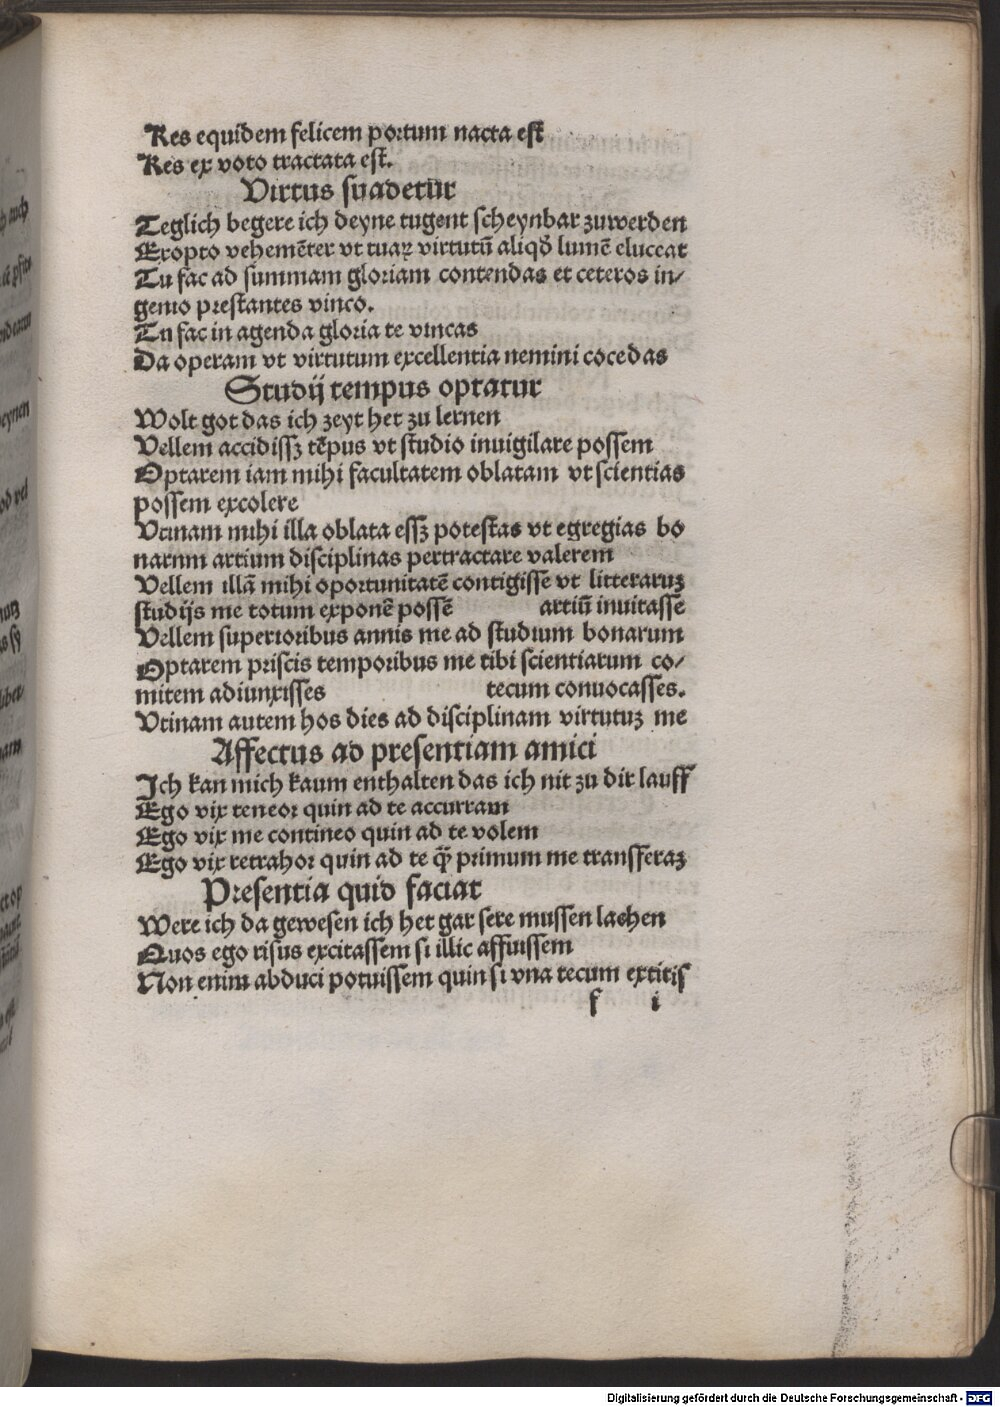 Res equidem felicem portum nacta est
Res ex voto tractata est.
Virtus suadetur
Teglich begere ich deyne tugent scheynbar zuwerden
Exopto vehemēter vt tuaꝝ virtutū aliqð lumē eluceat
Tu fac ad summam gloriam contendas et ceteros in⸗
genio prestantes vinco.
Tu fac in agenda gloria te vincas
Da operam vt virtutum excellentia nemini cōcedas
Studij tempus optatur
Wolt got das ich zeyt het zu lernen
Vellem accidissꝫ tēpus vt studio inuigilare possem
Optarem iam mihi facultatem oblatam vt scientias
possem excolere
Vtinam mihi illa oblata essꝫ potestas vt egregias bo
narum artium disciplinas pertractare valerem
Vellem illā mihi oportunitatē contigisse vt litteraruꝫ
studijs me totum exponē possē artiū inuitasse
Vellem superioribus annis me ad studium bonarum
Optarem priscis temporibus me tibi scientiarum co⸗
mitem adiunxisses tecum conuocasses.
Vtinam autem hos dies ad disciplinam virtutuꝫ me
Affectus ad presentiam amici
Ich kan mich kaum enthalten das ich nit zu dir lauff
Ego vix teneor quin ad te accurram
Ego vix me contineo quin ad te volem
Ego vix retrahor quin ad te q̄ꝫ primum me transferaꝫ
Presentia quid faciat
Were ich da gewesen ich het gar sere mussen lachen
Quos ego risus excitassem si illic affuissem
Non enim abduci potuissem quin si vna tecum extitis
f i
Digitalisierung gefördert durch die Deutsche Forschungsgemeinschaft - DFG